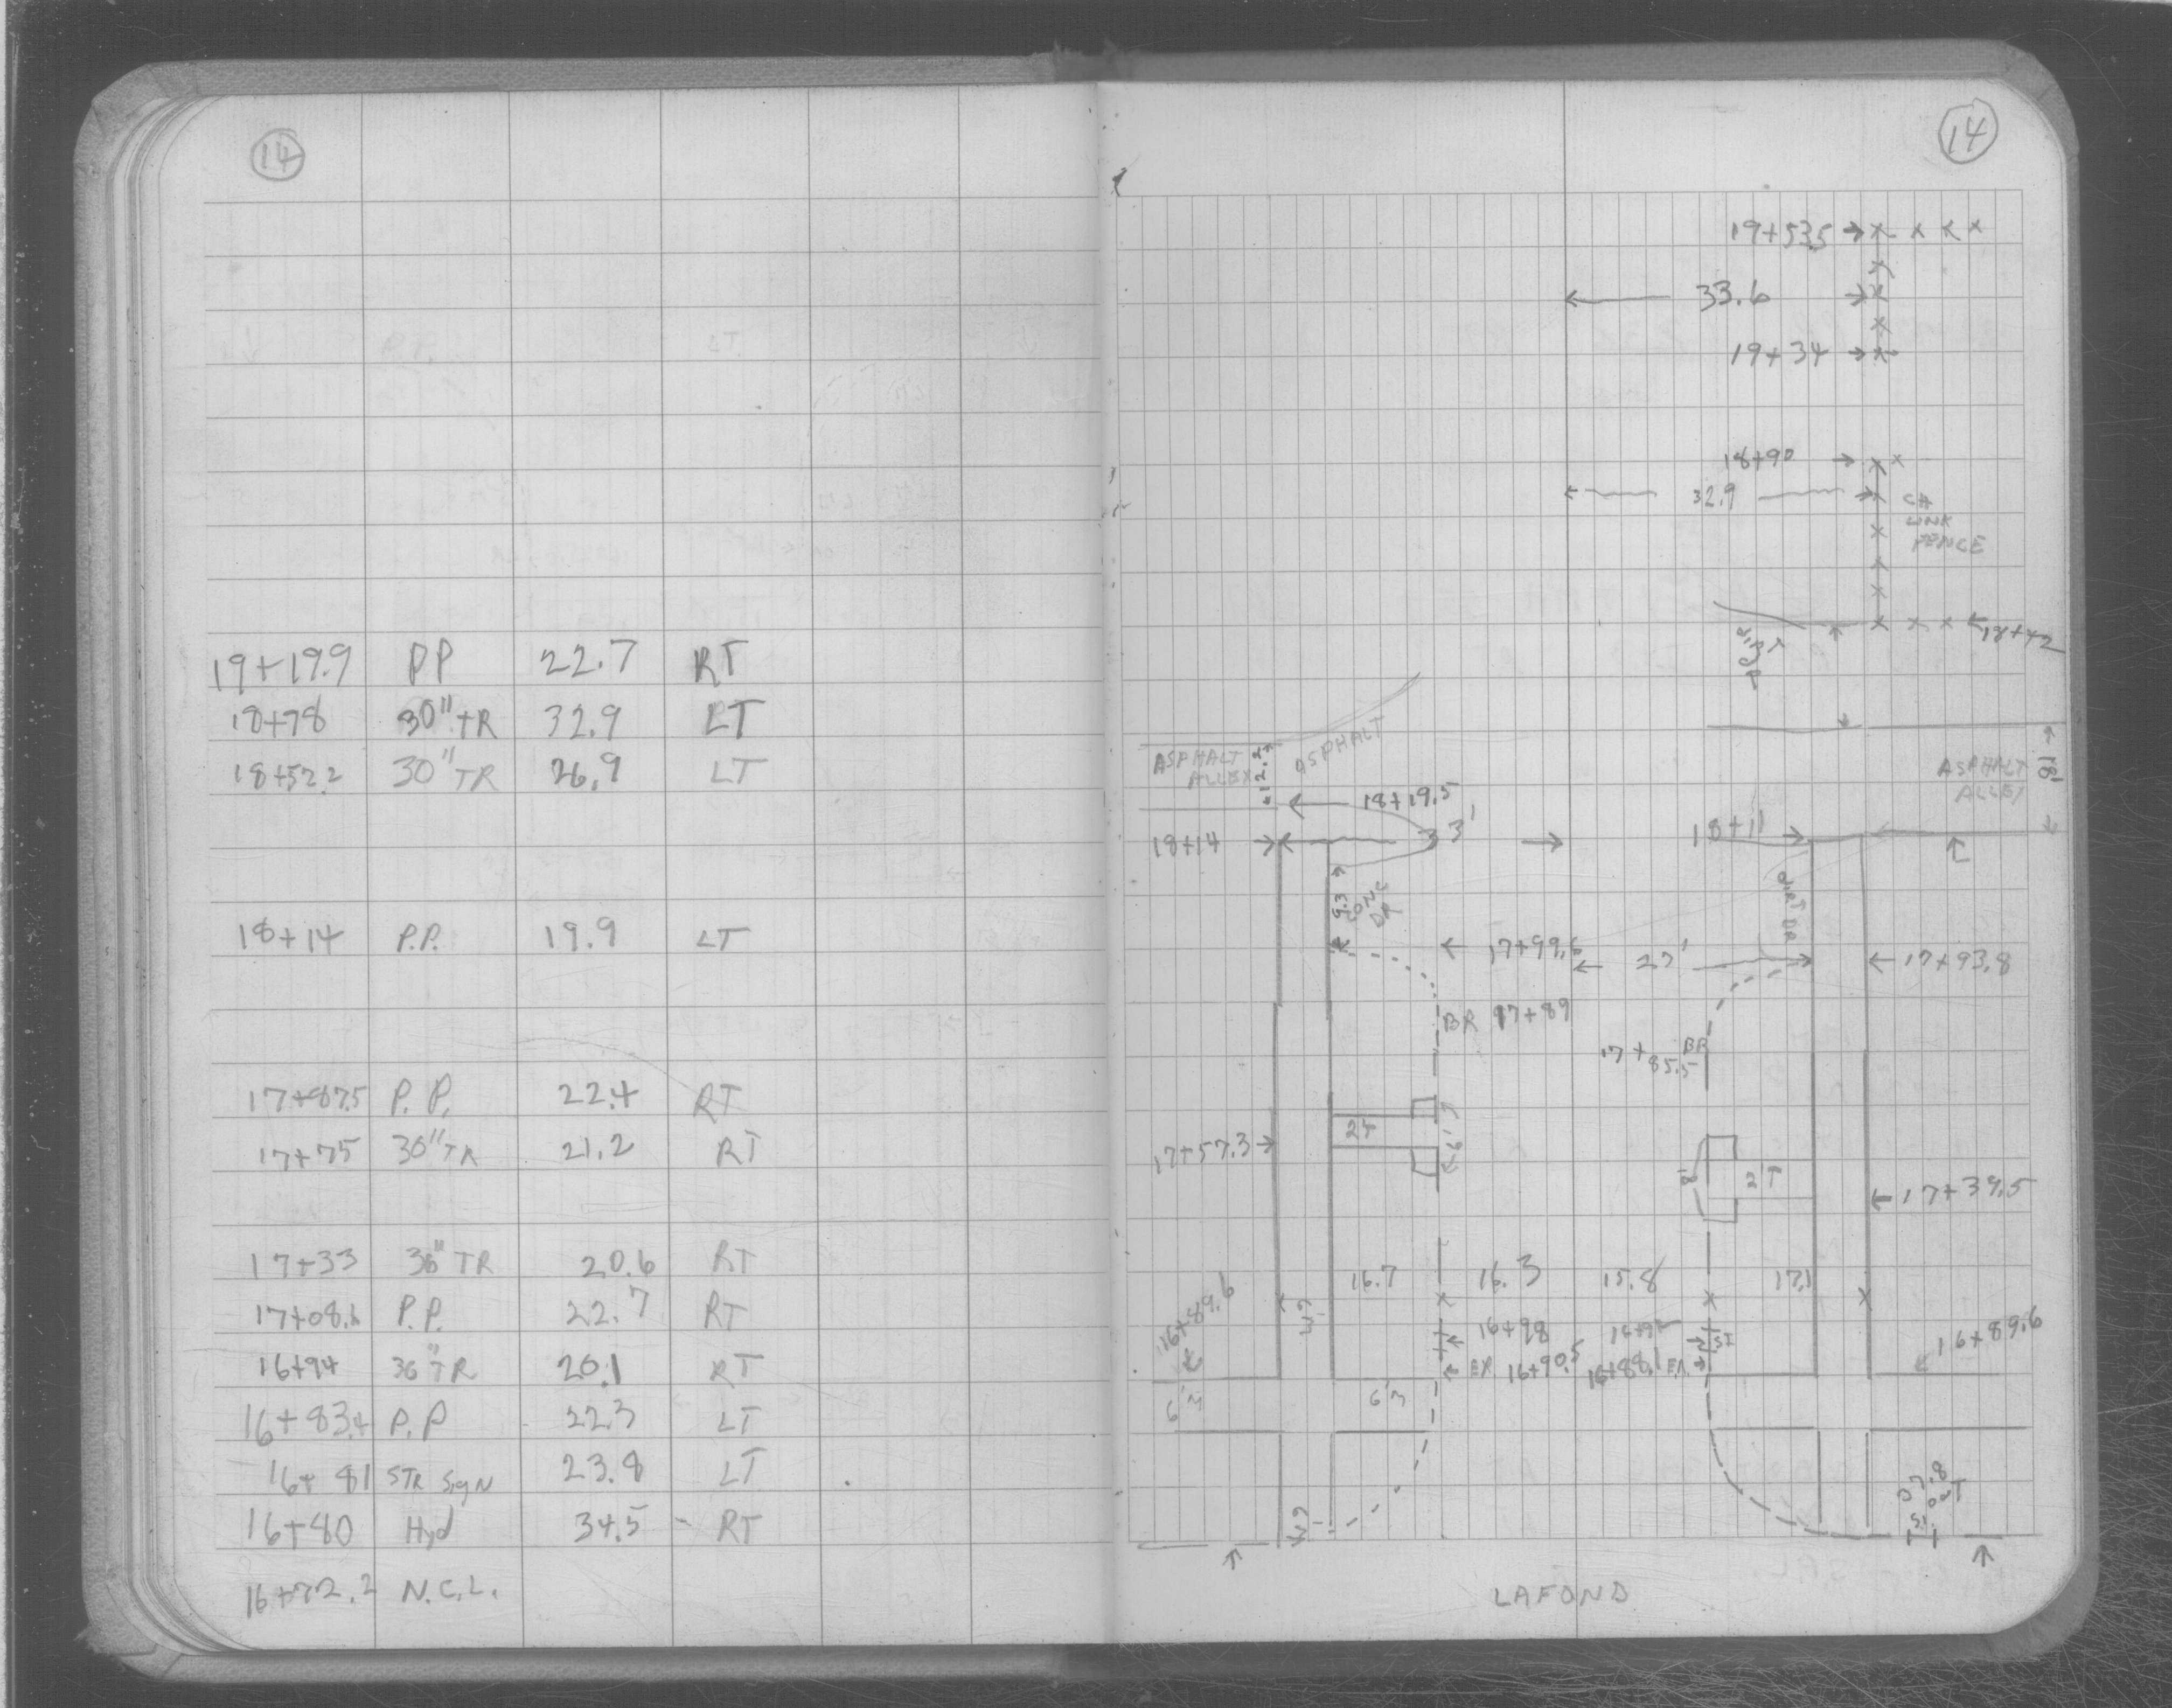 14
19+19.9 PP 22.7 RT
18+78 30" TR 32.9 LT
18+52.2 30" TR 26.9 LT
18+14 P.P. 19.9 LT
17+87.5 P.P. 22.4 RT
17+75 30" TR 21.2 RT
17+33 36" TR 20.6 RT
17+08.6 P.P. 22.7 RT
16+94 36" TR 20.1 RT
16+83.4 P.P 22.3 LT
16+81 STR SigN 23.8 LT
16+80 Hyd 34.5 - RT
16+72.2 N.C.L.
14
19+53.5
33.6
19+34
18+90
32.9
CH
LINK
FENCE
18+42
DIRT
ASPHALT
ALLEY
12.2
ASPHALT
ASPHALT
ALLEY
18'
18+19.5
18+14
33'
18+11
9.3
CONC
DR
DIRT DR
17+99.6
27'
17+93.8
BR 17+89
17+85.5 BR
17+57.3
2T
6'
8'
2T
17+39.5
16.7
16.3
15.8
17.1
16+89.6
16+98
SI
16+89.6
EX 16+90.5
16+88.1 EX
LAFOND